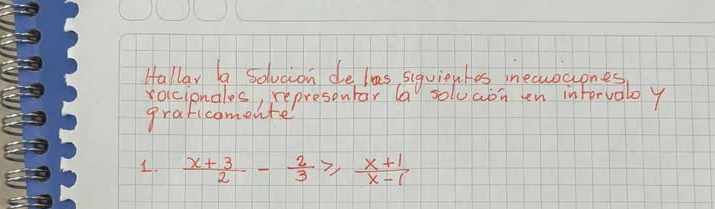 Hallar la solución de las siguientes inecuaciones
racionales, representar la solución en intervalo y
graficamente
1. \frac{x+3}{2} - \frac{2}{3} ≥ \frac{x+1}{x-1}